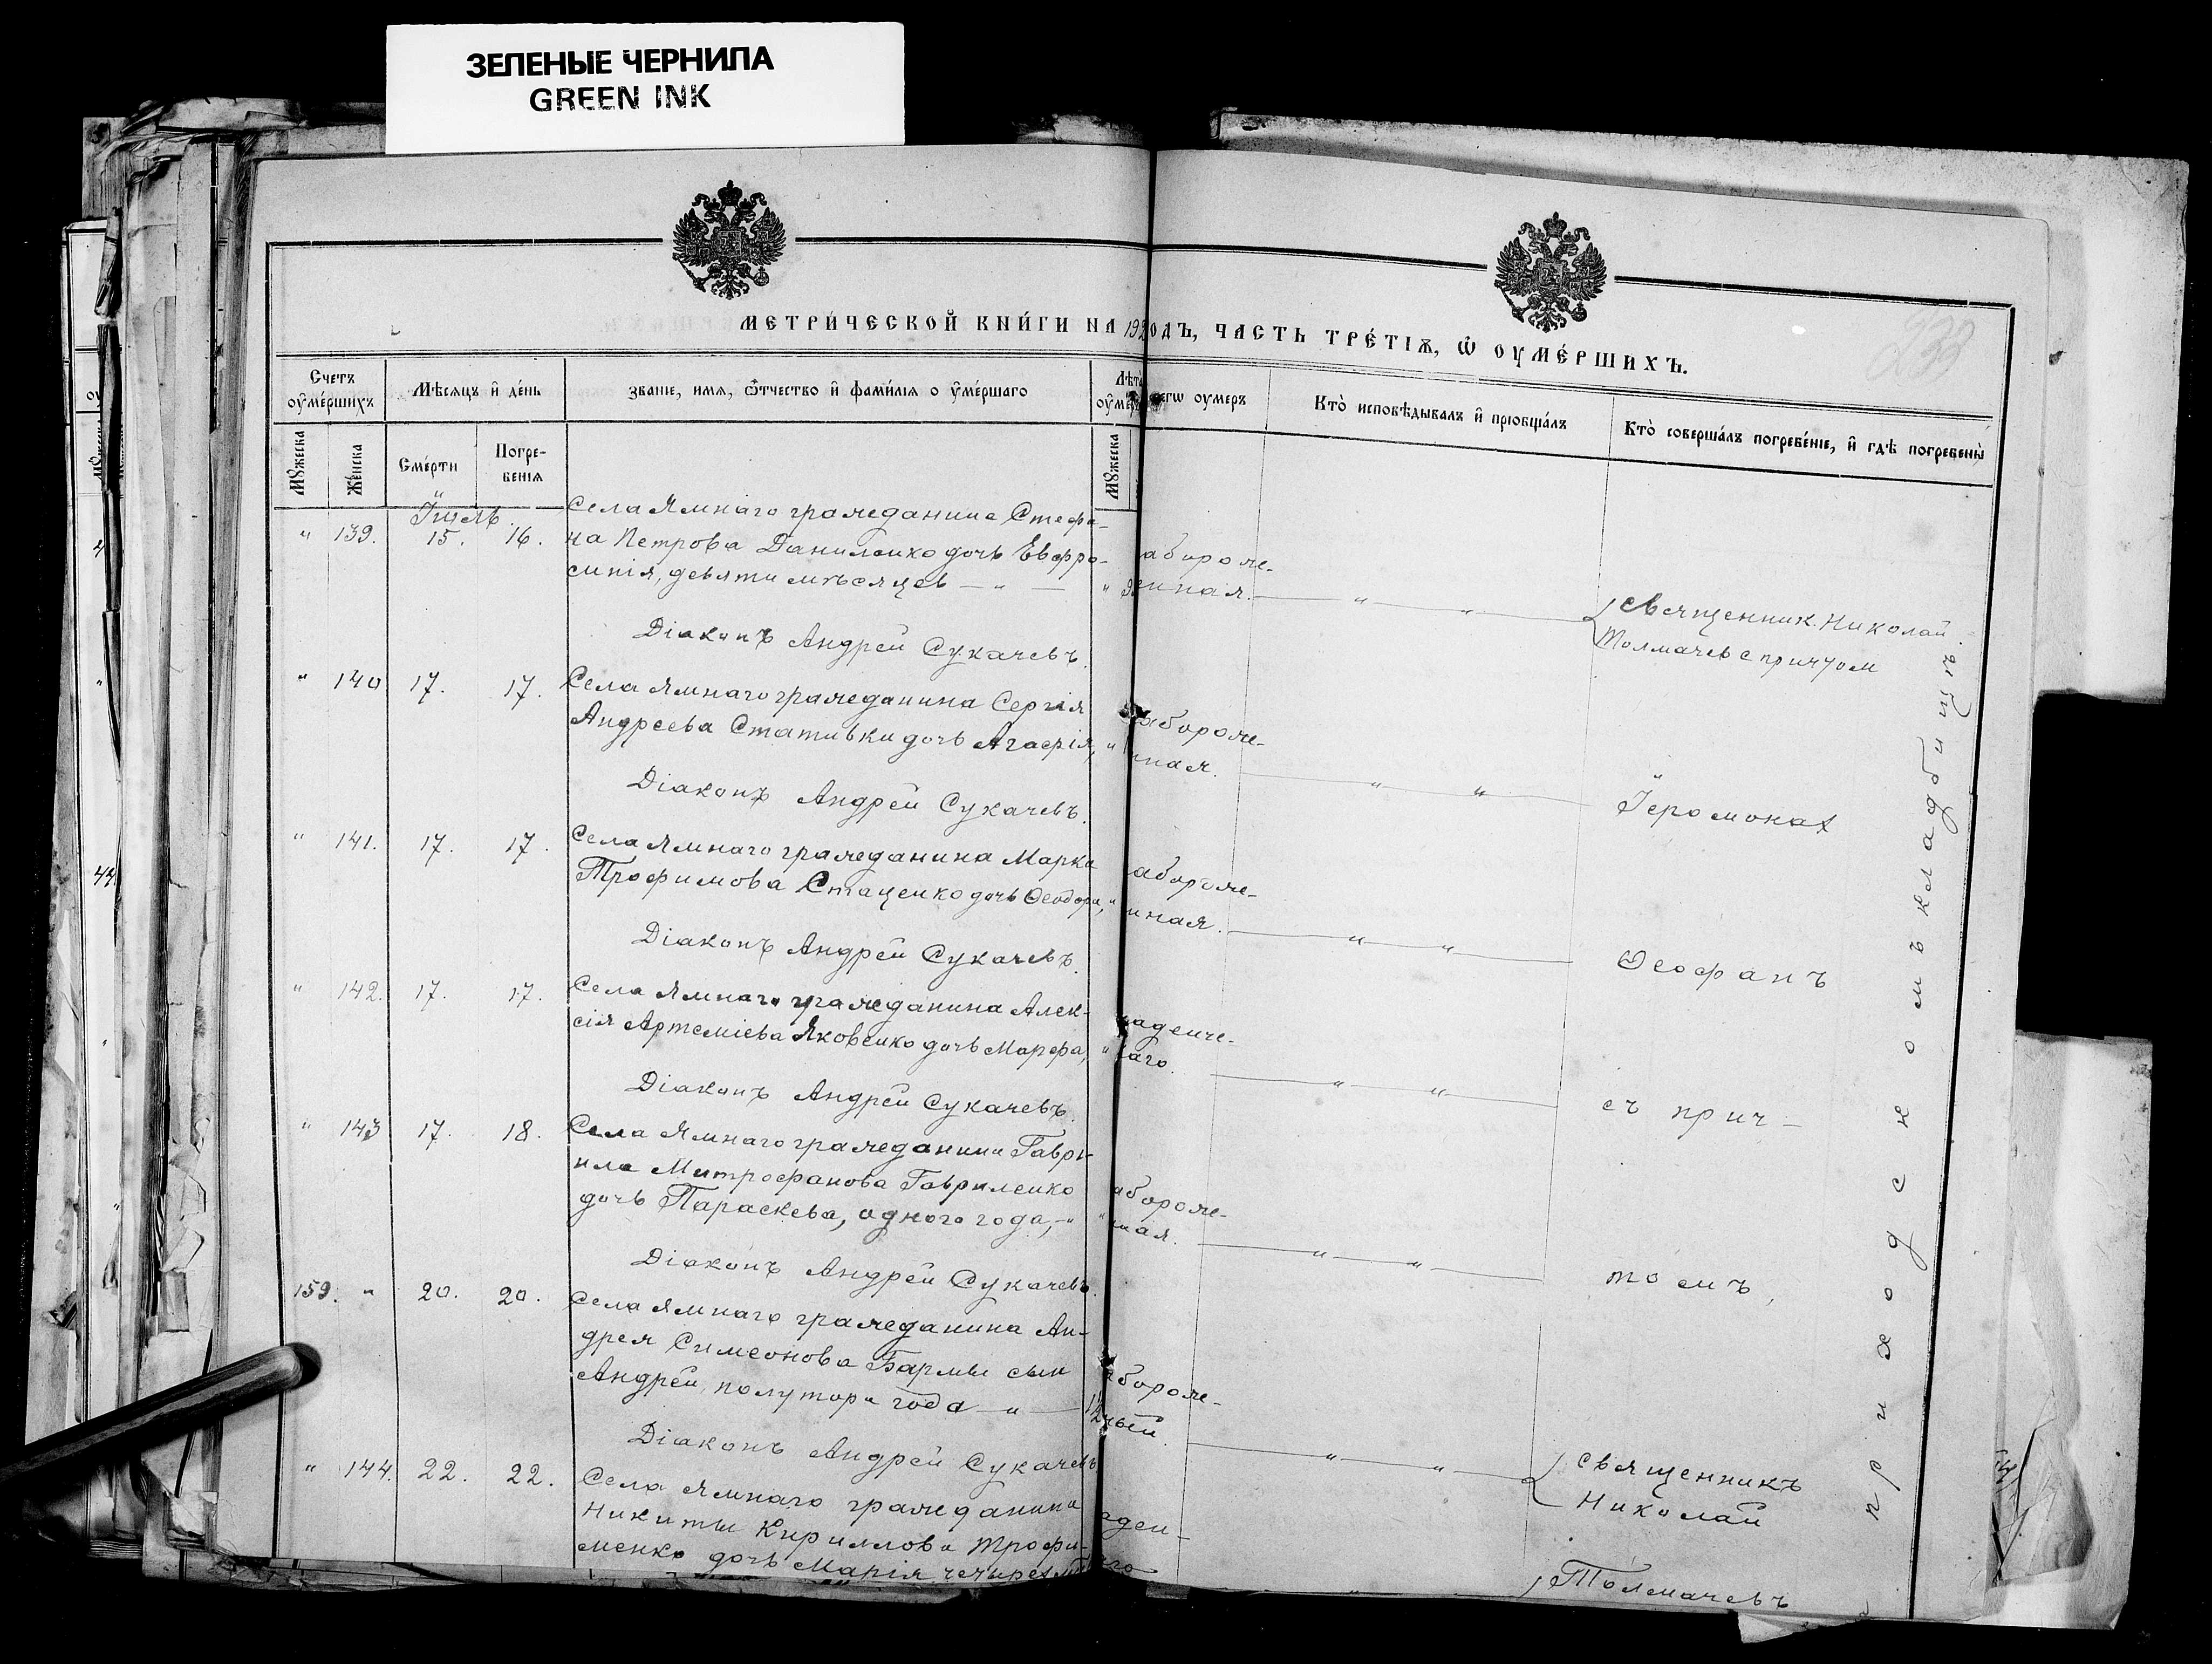 ЗЕЛЕНЫЕ ЧЕРНИЛА
GREEN INK
МЕТРИ́ЧЕСКОЙ КНИ́ГИ НА 19 ОДЪ, ЧАСТЬ ТРЕ́ТІѦ, Ѿ ОУМЕ́РШИХЪ.
Счетъ оумéршихъ
Мѣсяцъ и́ дéнь
званіе, имя, ѿтчество и́ фами́лія о умéршаго
егѡ оумеръ
Кто̀ исповѣдывалъ и́ пріобща́лъ
Кто̀ соверша́лъ погребéніе, и́ гдѣ погребены̀
Мꙋжеска
Жéнска
Смéрти
Погре-
бенія
Мꙋжеска
Іюль
" 139. 15. 16.
Села Ямнаго гражданина Стефа-
на Петрова Даниленко дочь Евфро-
синія, девяти мѣсяцев — " —
абороже-
енная. — " — " —
Священник Николай
Толмачев с причтом
Діаконъ Андрей Сукачевъ.
" 140 17. 17.
Села Ямнаго гражданина Сергія
Андреева Стативки дочь Агафія, "
абороже-
нная. — " — " —
Іеромонах
Діаконъ Андрей Сукачевъ.
" 141. 17. 17.
Села Ямнаго гражданина Марка
Трофимова Стаценко дочь Ѳеодора, "
абороже-
нная. — " — " —
Ѳеофанъ
Діаконъ Андрей Сукачевъ.
" 142. 17. 17.
Села Ямнаго гражданина Алек-
сія Артеміева Яковенко дочь Марфа, "
аденче-
каго. — " — " —
съ прич-
Діаконъ Андрей Сукачевъ.
" 143 17. 18.
Села Ямнаго гражданина Гаври-
ила Митрофанова Гавриленко
дочь Параскева, одного года, — "
абороже-
ная. — " — " —
томъ,
Діаконъ Андрей Сукачевъ.
159. " 20. 20.
Села Ямнаго гражданина Ан-
дрея Симеонова Бармы сын
Андрей, полутора года — " — 1½
абороже-
ный. — " — " —
Священникъ
Николай
Діаконъ Андрей Сукачевъ
" 144. 22. 22.
Села Ямнаго гражданина
Никиты Кириллова Трофи-
менко дочь Марія, четырех
аден-
аго
Толмачевъ
приходском кладбищѣ.